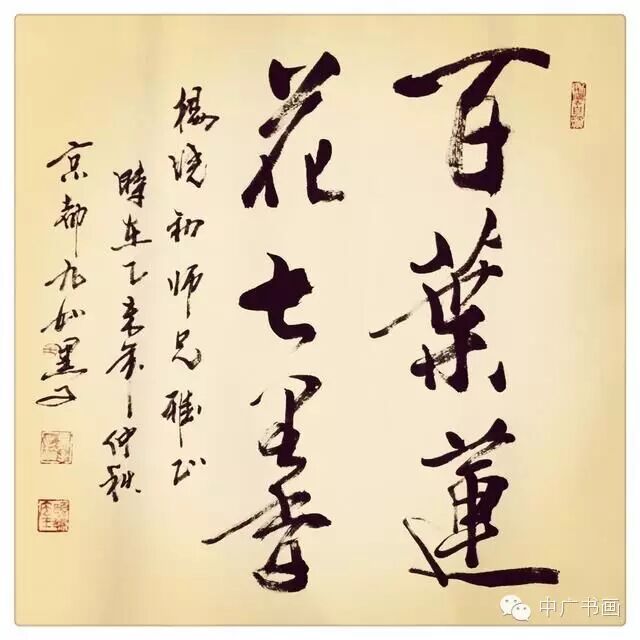 百葉蓮
花七里香
楊曉初師兄雅正
時在乙未年仲秋
京都九如墨子
中广书画